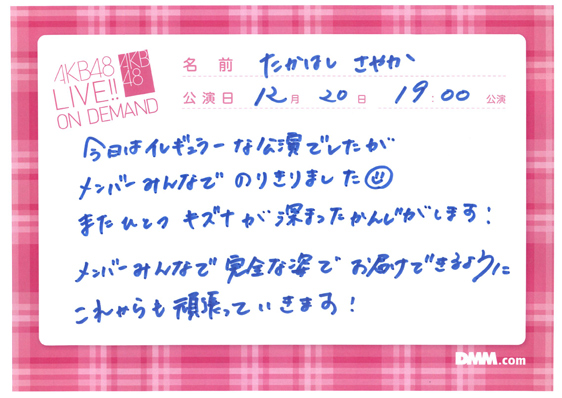 AKB48
LIVE!!
ON DEMAND
AKB
48
名前 たかはし さやか
公演日 12月 20日 19:00 公演
今日はイレギュラーな公演でしたが
メンバーみんなで のりきりました
またひとつ キズナが深まったかんじがします!
メンバーみんなで 完全な姿で お届けできるように
これからも頑張っていきます!
DMM.com